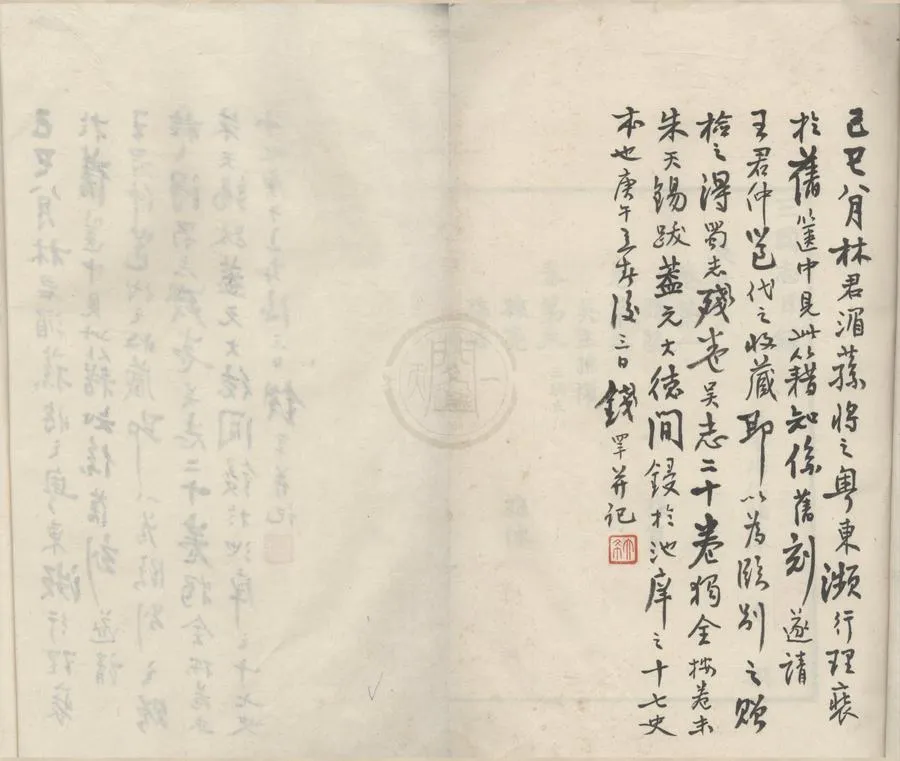 己巳八月林君湄蓀將之粵東瀕行理裝
於舊篋中見此籍知係舊刻遂請
王君仲邕代之收藏聊以為臨別之贈
檢之得蜀志殘卷吳志二十卷獨全按卷末
朱天錫跋蓋元大徳間鋟於池庠之十七史
本也庚午立春後三日錢罕并记